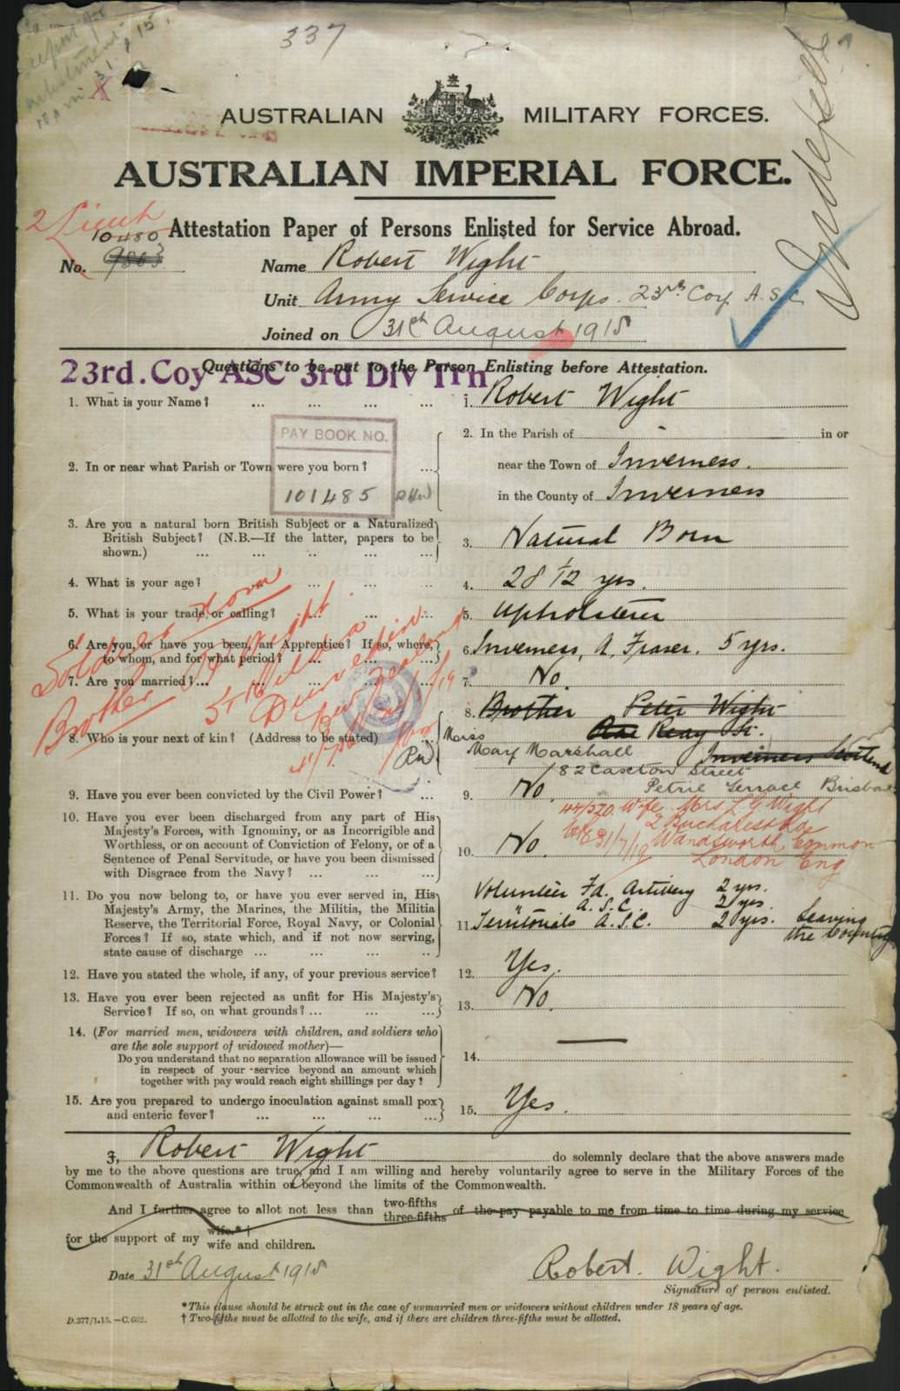 337
AUSTRALIAN MILITARY FORCES.
AUSTRALIAN IMPERIAL FORCE.
2 Lieut
Attestation Paper of Persons Enlisted for Service Abroad.
10480
No. 9863
Name Robert Wight
Unit Army Service Corps. 23rd Coy A.S.C.
Joined on 31st August 1915
Questions to be put to the Person Enlisting before Attestation.
23rd. Coy ASC 3rd Div Trn
1. What is your Name? ... ... ... ... 1. Robert Wight
PAY BOOK NO.
101485
2. In or near what Parish or Town were you born? ...
2. In the Parish of - in or
near the Town of Inverness.
in the County of Inverness
3. Are you a natural born British Subject or a Naturalized
British Subject? (N.B.—If the latter, papers to be
shown.) ... ... ... ... ...
3. Natural Born
4. What is your age? ... ... ... 4. 28 1/12 yrs.
5. What is your trade or calling? ... ... 5. Upholsterer
6. Are you, or have you been, an Apprentice? If so, where,
to whom, and for what period? ... ...
6. Inverness, A. Fraser. 5 yrs.
7. Are you married? ... ... ... 7. No
Brother
Wight
St Kilda
Dunedin
New Zealand
8. Who is your next of kin? (Address to be stated)
8. Brother Peter Wight
Reay St.
Inverness Scotland
Miss
Mary Marshall
82 Caxton Street
Petrie Terrace Brisbane
9. Have you ever been convicted by the Civil Power? ... 9. No
Wife Mrs L G Wight
2 Bucharest Rd
Wandsworth Common
London Eng
10. Have you ever been discharged from any part of His
Majesty's Forces, with Ignominy, or as Incorrigible and
Worthless, or on account of Conviction of Felony, or of a
Sentence of Penal Servitude, or have you been dismissed
with Disgrace from the Navy? ... ... ...
10. No.
11. Do you now belong to, or have you ever served in, His
Majesty's Army, the Marines, the Militia, the Militia
Reserve, the Territorial Force, Royal Navy, or Colonial
Forces? If so, state which, and if not now serving,
state cause of discharge ... ... ... ...
Volunteer Fd. Artillery 2 yrs.
" A.S.C. 2 yrs.
11. Territorials A.S.C. 2 yrs. Leaving
the Country
12. Have you stated the whole, if any, of your previous service? 12. Yes.
13. Have you ever been rejected as unfit for His Majesty's
Service? If so, on what grounds? ... ... ...
13. No
14. (For married men, widowers with children, and soldiers who
are the sole support of widowed mother)—
Do you understand that no separation allowance will be issued
in respect of your service beyond an amount which
together with pay would reach eight shillings per day?
14. —
15. Are you prepared to undergo inoculation against small pox
and enteric fever? ... ... ... ...
15. Yes.
I, Robert Wight do solemnly declare that the above answers made
by me to the above questions are true, and I am willing and hereby voluntarily agree to serve in the Military Forces of the
Commonwealth of Australia within or beyond the limits of the Commonwealth.
And I further agree to allot not less than two-fifths three-fifths of the pay payable to me from time to time during my service
for the support of my wife.*† wife and children.
Date 31st August 1915
Robert. Wight.
Signature of person enlisted.
*This clause should be struck out in the case of unmarried men or widowers without children under 18 years of age.
† Two-fifths must be allotted to the wife, and if there are children three-fifths must be allotted.
D.377/1.15.—C.662.